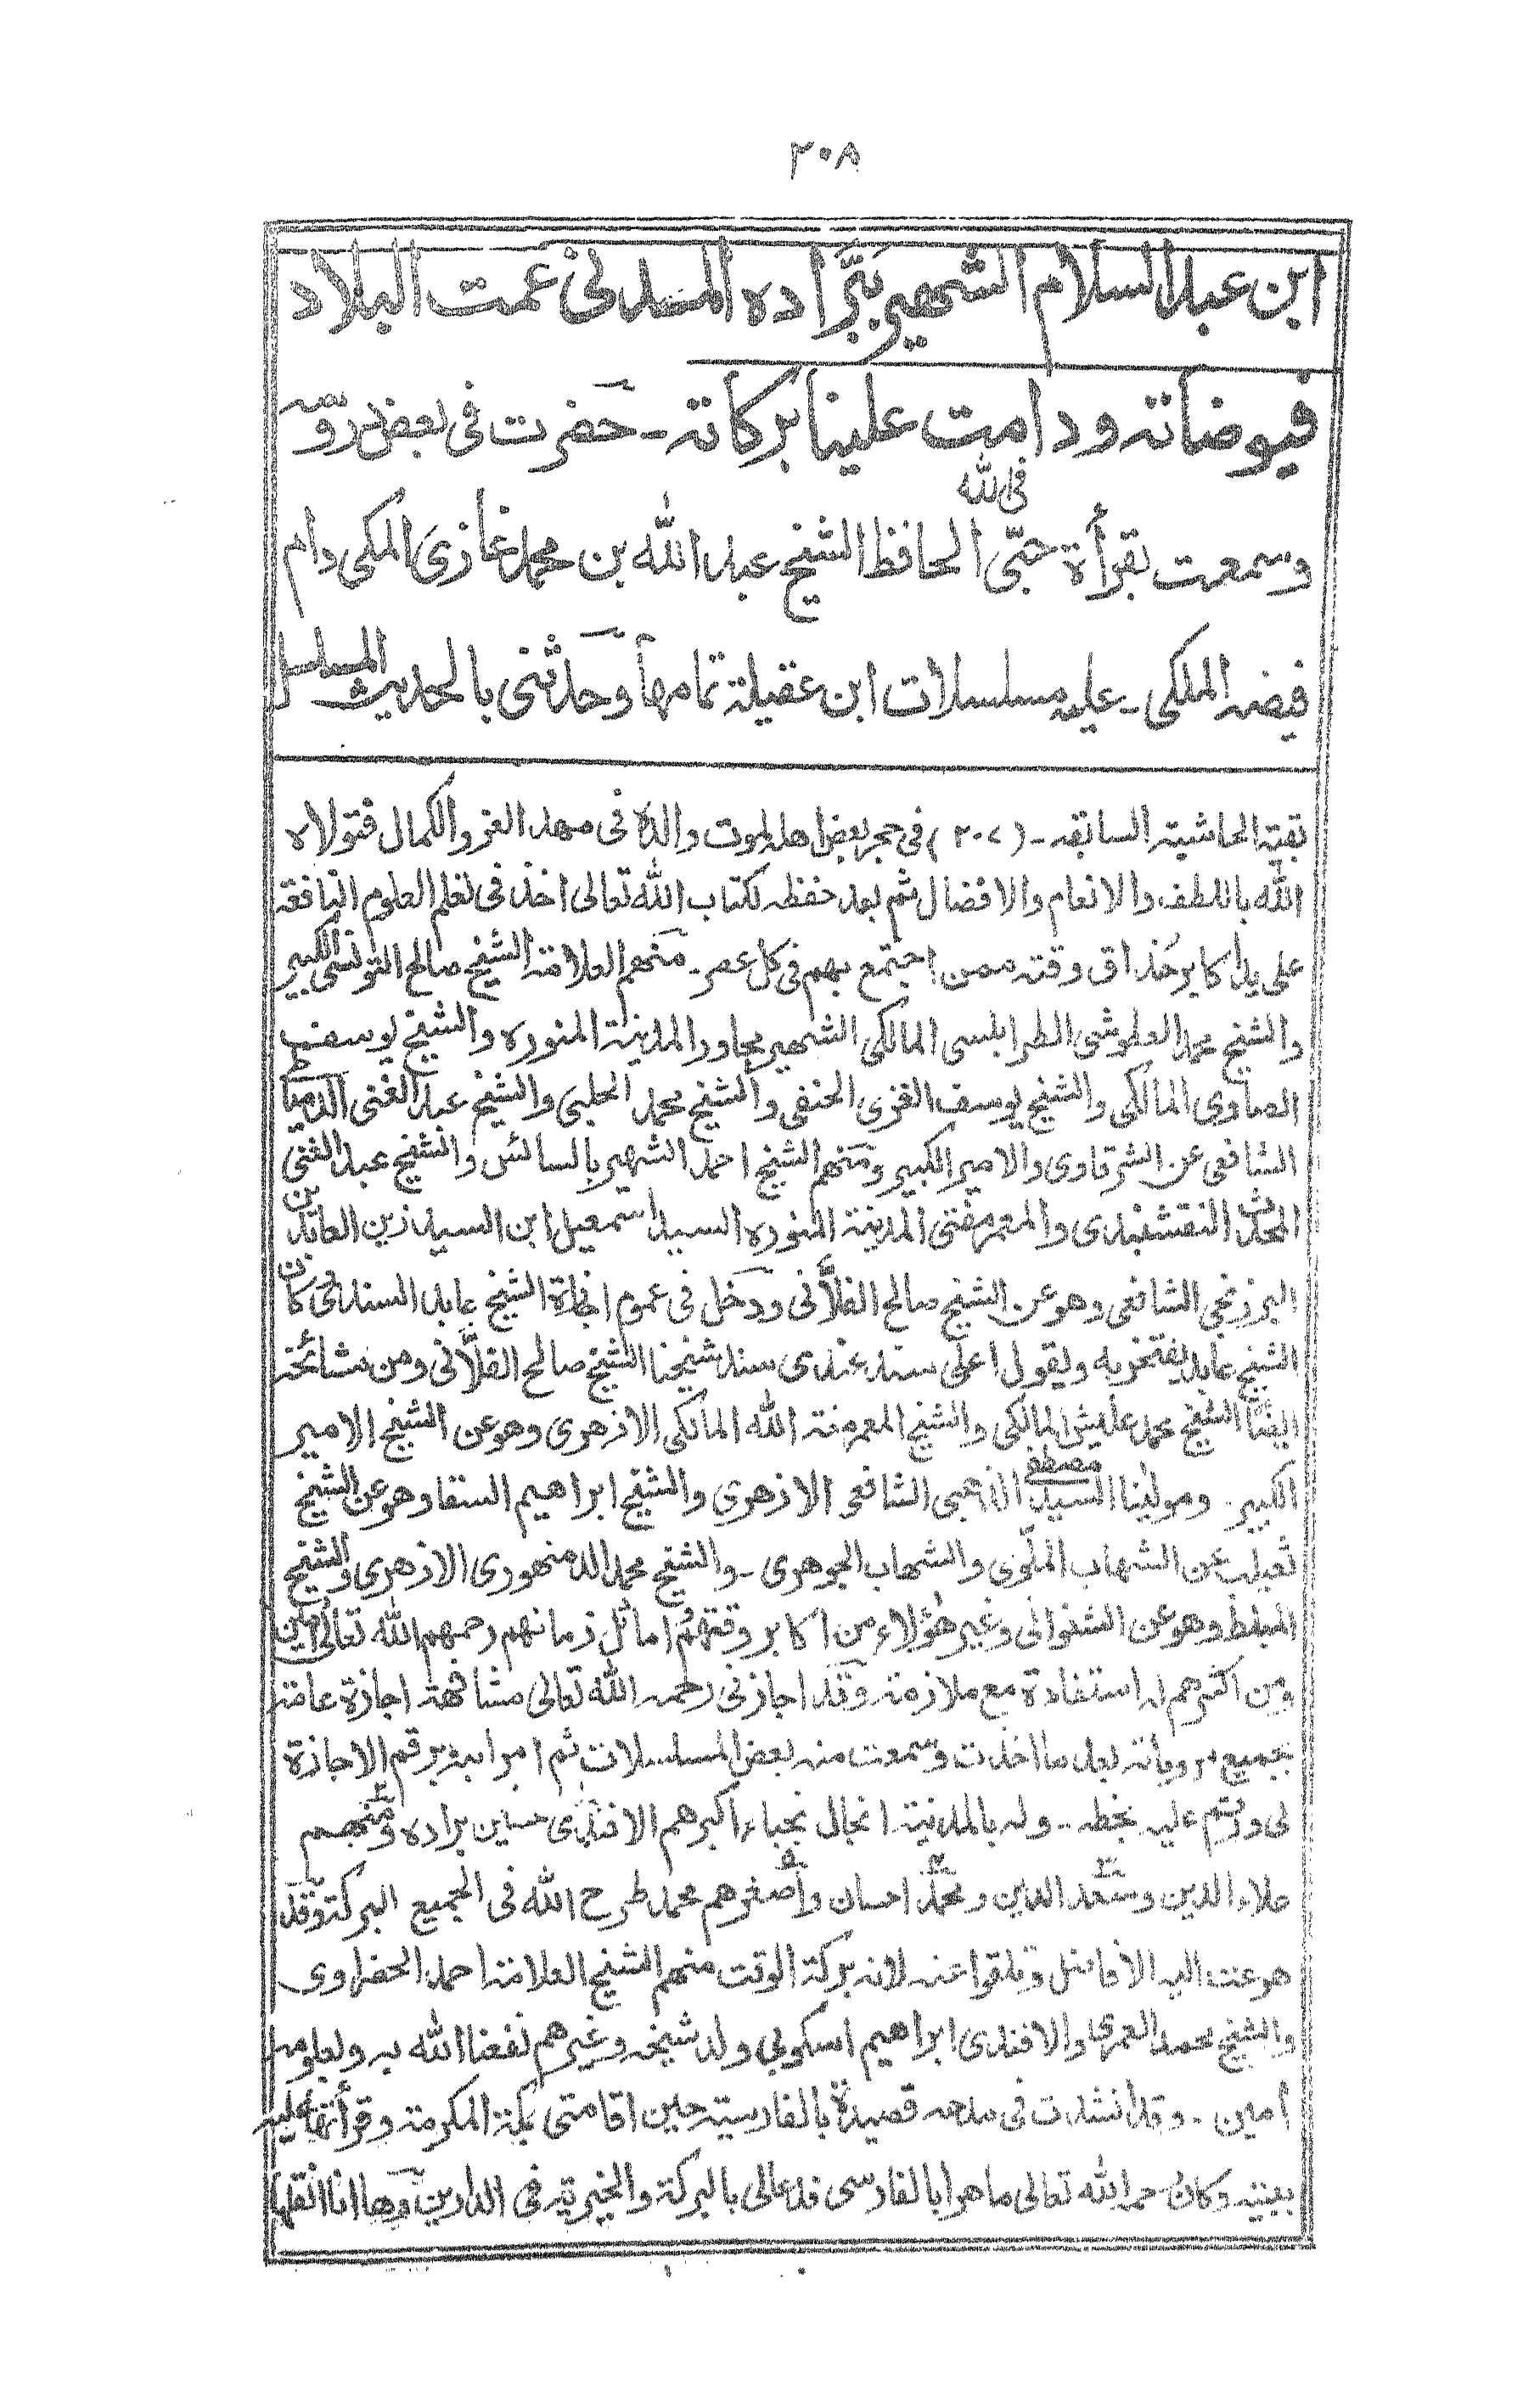 ٢٠٨
ابن عبد السلام الشهير ببَرَّاده المدنى عمت البلاد
فيوضاته ودامت علينا بركاته ـ حضرت فى بعض دروسه
فى الله
وسمعت بقرأة حبّى الحافظ الشيخ عبد الله بن محمد غازى المكى دام
فيضه الملكى ـ عليه مسلسلات ابن عقيلة تمامها وحدثنى بالحديث المسلسل
بقية الحاشية السابقه ـ (٢٠٧) فى حجر بعض اهله لموت والده فى مهد العز والكمال فتولاه
الله باللطف والانعام والافضال ثم بعد حفظه لكتاب الله تعالى اخذ فى تعلم العلوم النافعة
على يد اكابر حُذاق وقته ممن اجتمع بهم فى كل عصر ـ منهم العلامة الشيخ صالح التونسى الكبير
والشيخ محمد العلوشى الطرابلسى المالكى الشهير مجاور المدينة المنوره والشيخ يوسف
الصاوى المالكى والشيخ يوسف الغزى الحنفى والشيخ محمد الحلبى والشيخ عبد الغنى الدمياطى
الشافعى عن الشرقاوى والامير الكبير ومنهم الشيخ احمد الشهير بالسائس والشيخ عبد الغنى
المحدث النقشبندى والمعمر مفتى المدينة المنوره السيد اسمعيل ابن السيد زين العابدين
البرزنجى الشافعى وهو عن الشيخ صالح الفلاّنى ودخل فى عموم اجازة الشيخ عابد السندى كان
الشيخ عابد يفتخر به ويقول اعلى سند عندى سند شيخنا الشيخ صالح الفلاّنى ومن مشائخه
ايضًا الشيخ محمد عليش المالكى والشيخ المعمر منة الله المالكى الازهرى وهو عن الشيخ الامير
الكبير ـ ومولينا السيد مصطفى الذهبى الشافعى الازهرى والشيخ ابراهيم السقا وهو عن الشيخ
ثعيلب عن الشهاب الملّوى والشهاب الجوهرى ـ والشيخ محمد الدمنهورى الازهرى والشيخ
المبلط وهو عن الشنوانى وغير هؤلاء من اكابر وقتهم اماثل زمانهم رحمهم الله تعالى اٰمين
ومن اكثرهم له استفادة مع ملازمة وقد اجازنى رحمه الله تعالى مشافهة اجازة عامة
بجميع مروياته بعد ما اخذت وسمعت منه بعض المسلسلات ثم امر ابنه برقم الاجازة
لى ورقم عليه بخطه ـ وله بالمدينة انجال نجباء اكبرهم الافندى حسين براده ومنهم
علاء الدين وسعد الدين ومحمد احسان واصغرهم محمد طرح الله فى الجميع البركة وقد
هرعت اليه الافاضل وتلقوا عنه لانه بركة الوقت منهم الشيخ العلامة احمد الحضراوى
والشيخ محمد العمرى والافندى ابراهيم اسكوبى ولد شيخه وغيرهم نفعنا الله به وبعلومه
اٰمين ـ وقد انشدت فى مدحه قصيدة بالفارسية حين اقامتى بمكة المكرمة وقرأتها عليه
ببيته وكان رحمه الله تعالى ماهرا بالفارسى فدعالى بالبركة والخيرية فى الدارين وها انا انقلها